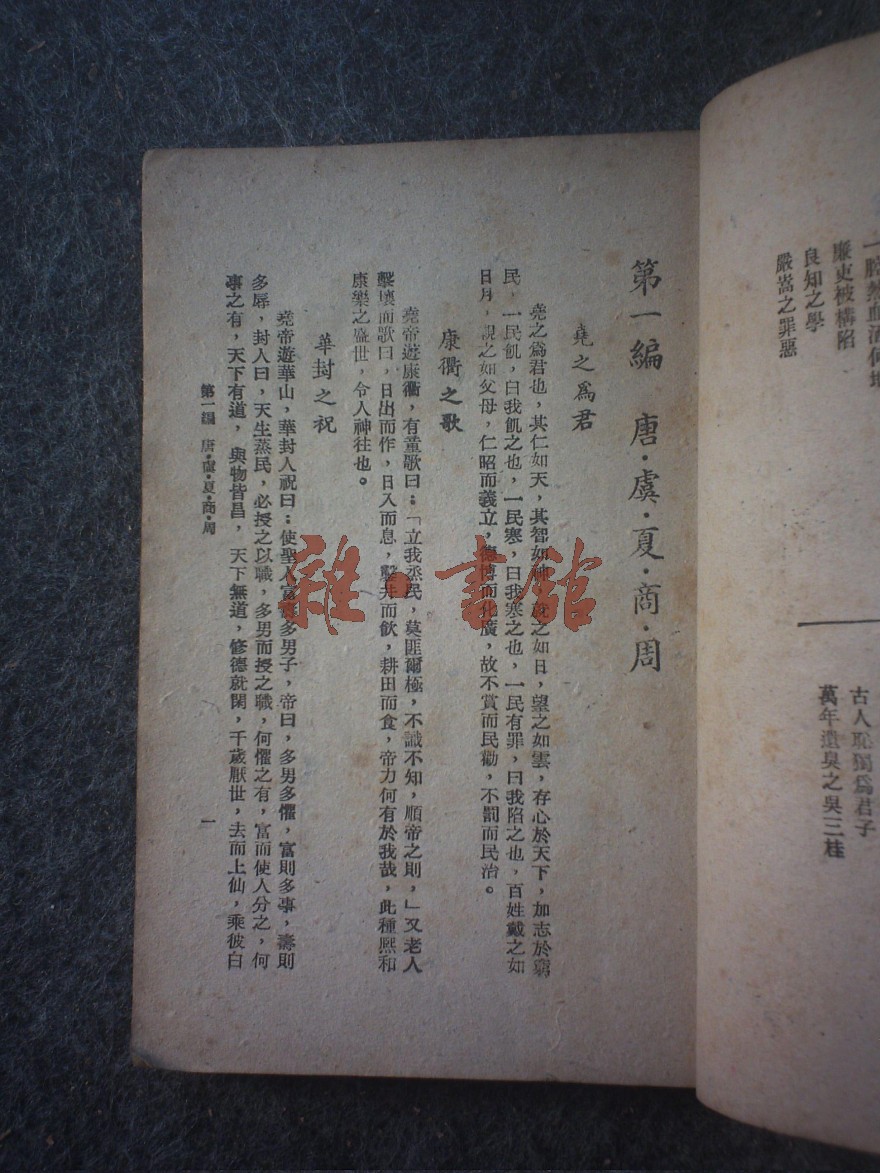 一腔熱血洒何地
廉吏被構陷
良知之學
嚴嵩之罪惡
古人恥獨爲君子
萬年遺臭之吳三桂
第一編　唐・虞・夏・商・周
堯之爲君
堯之爲君也，其仁如天，其智如神，就之如日，望之如雲，存心於天下，加志於窮
民，一民飢，曰我飢之也，一民寒，曰我寒之也，一民有罪，曰我陷之也，百姓戴之如
日月，視之如父母，仁昭而義立，德博而化廣，故不賞而民勸，不罰而民治。
康衢之歌
堯帝遊康衢，有童歌曰：「立我烝民，莫匪爾極，不識不知，順帝之則，」又老人
擊壤而歌曰，日出而作，日入而息，鑿井而飲，耕田而食，帝力何有於我哉，此種熙和
康樂之盛世，令人神往也。
華封之祝
堯帝遊華山，華封人祝曰：使聖人富壽多男子，帝曰，多男多懼，富則多事，壽則
多辱，封人曰，天生蒸民，必授之以職，多男而授之職，何懼之有，富而使人分之，何
事之有，天下有道，與物皆昌，天下無道，修德就閑，千歲厭世，去而上仙，乘彼白
第一編　唐・虞・夏・商・周
一
雜・書館